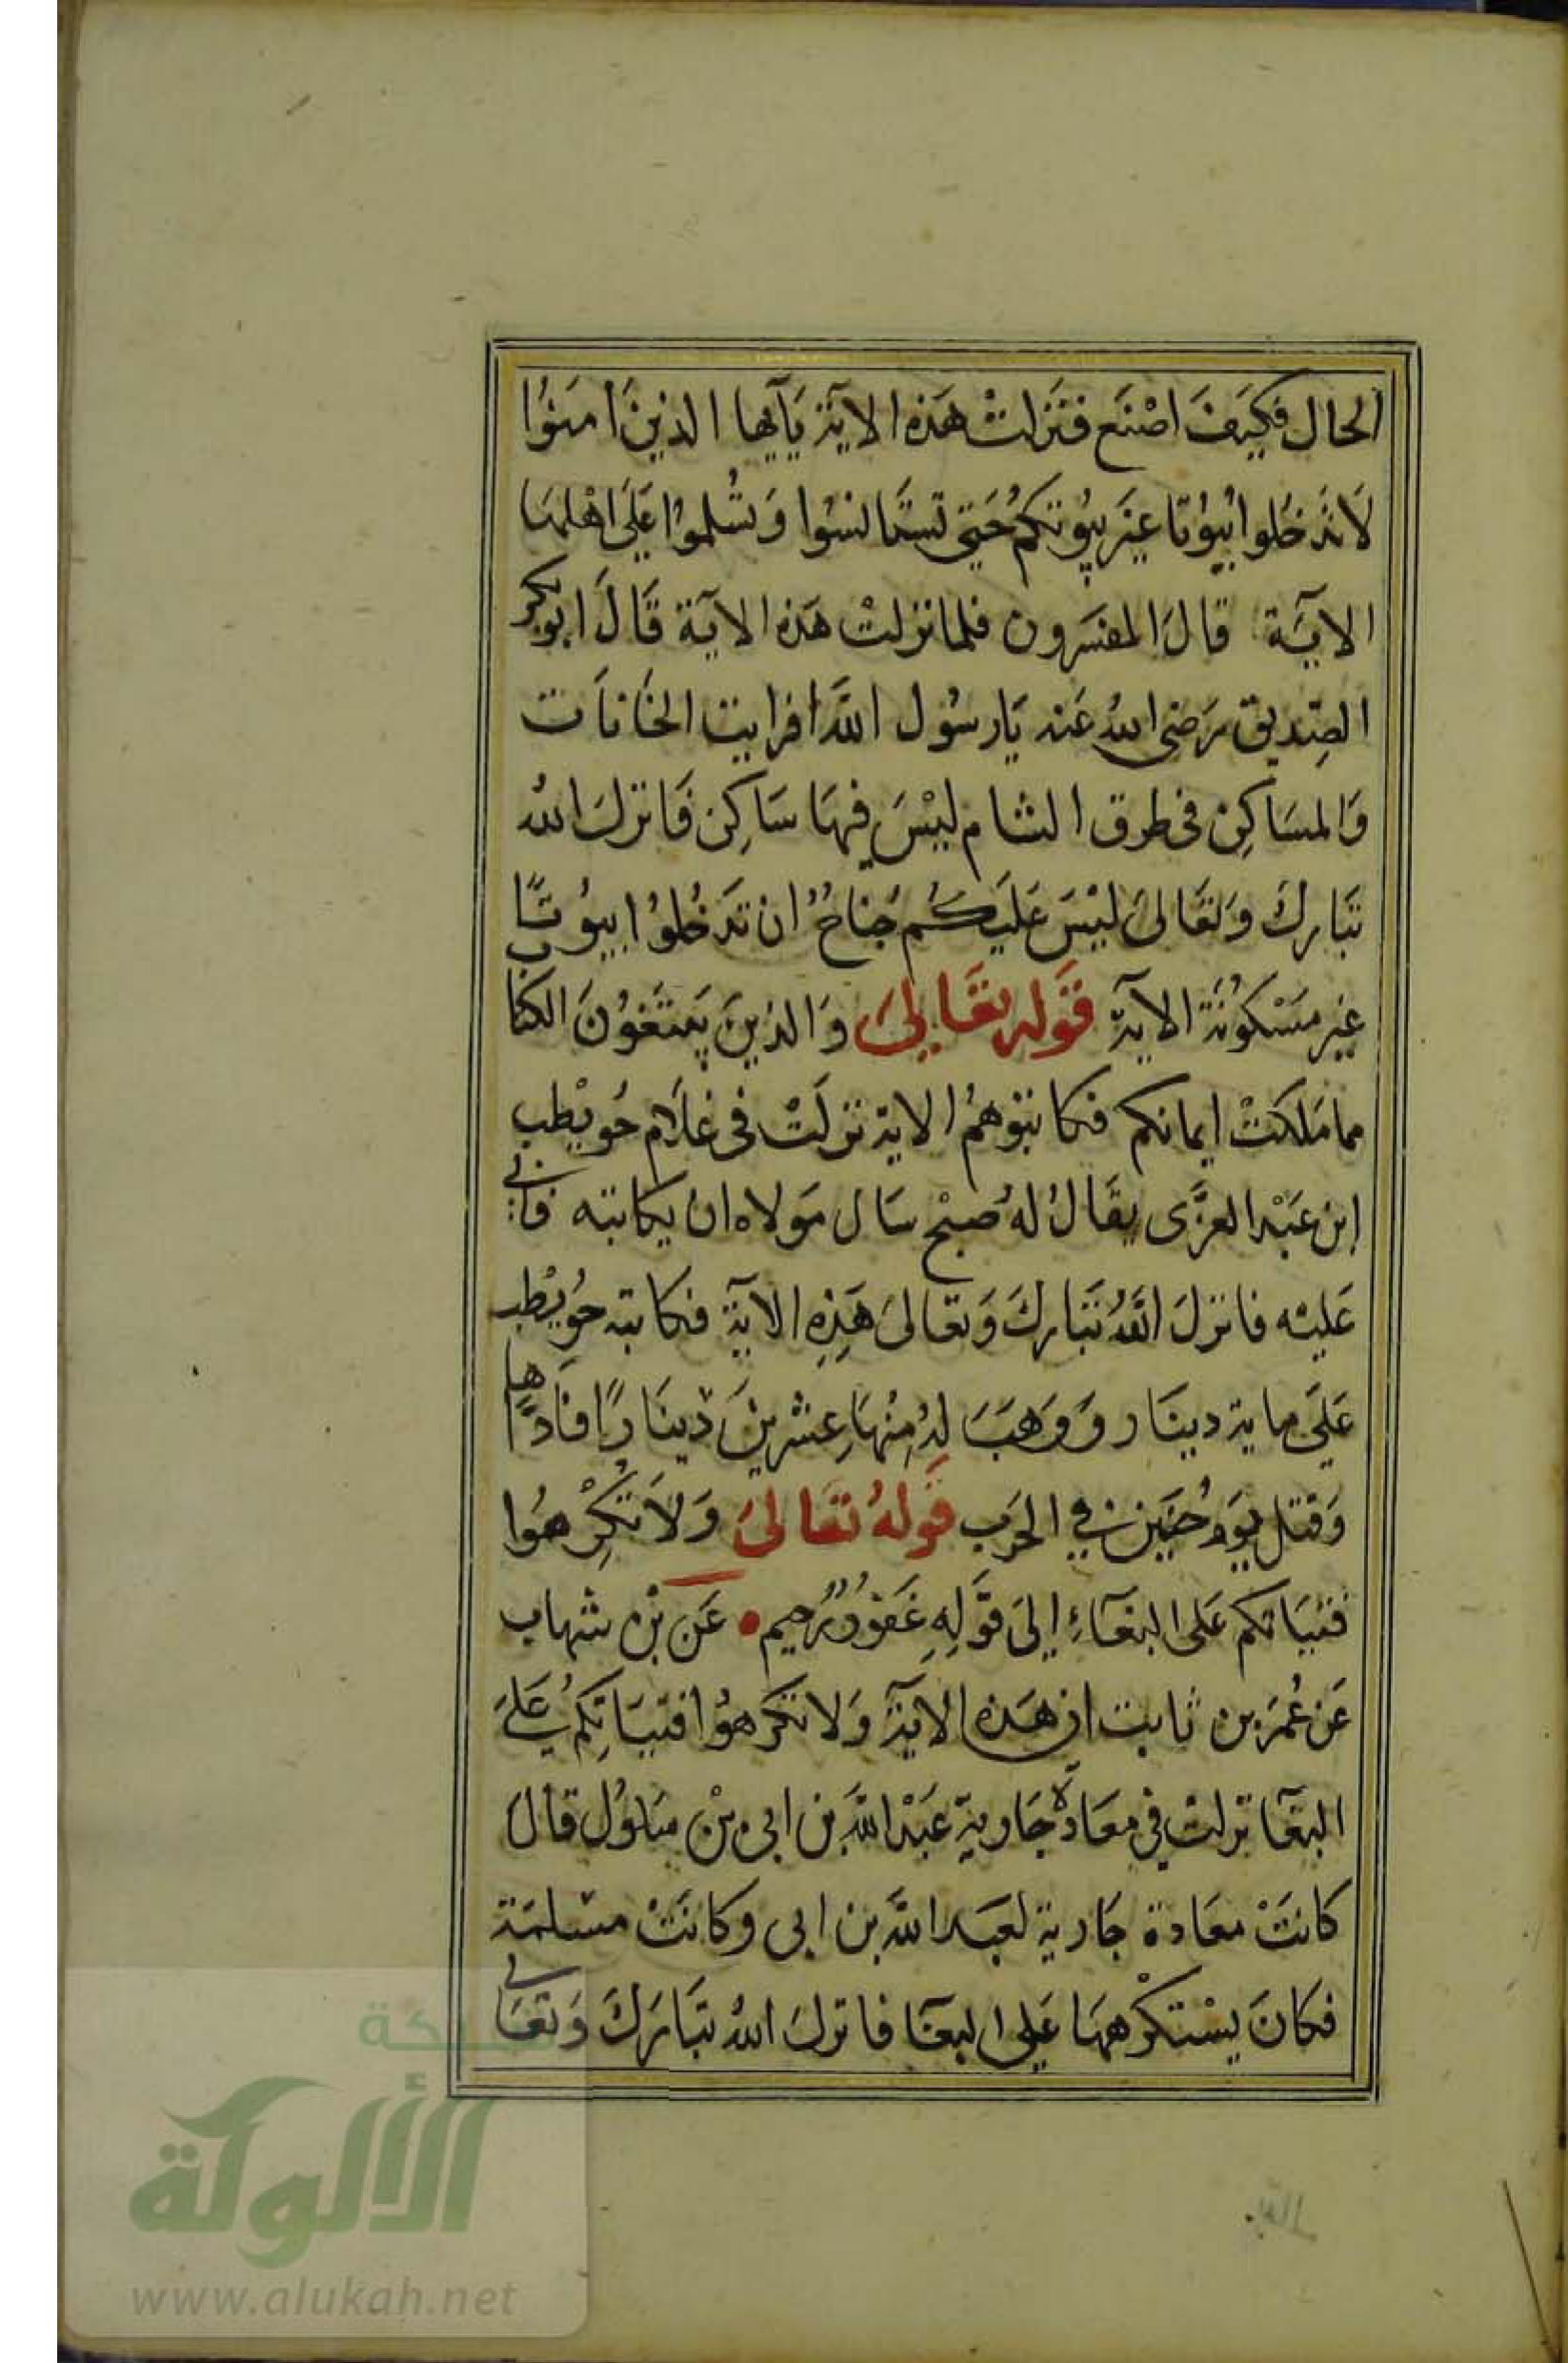 الحال فكيَف اصْنَع فنَزلتْ هَذه الايَة يَآيها الذينَ امَنوُا
لَا تدَخلوا بُيوُتا غيَر بيُوتكمُ حَتي تستَانسُوا وَتسُلموُا عَلَى اهْلهَا
الايَة قالَ المفسَرون فلما نزلتْ هَذه الايَة قَالَ ابو بكر
الصِديق رَضي اللهُ عَنه يَارسُول اللَّه افرايت الخَانَات
وَالمسَاكِن فى طرق الشام ليْسَ فيهَا سَاكِن فَانزلَ اللهُ
تبَاركَ وَتعَالىَ ليْسَ عَليَكُم جَناحُ ان تدَخُلوُا بيوُتًا
غير مَسْكوُنَة الايَة قوَله تعَالىَ وَالذينَ يَبتَغوُنَ الكتَا
مما مَلكتْ ايمانكم فكاتبوهمُ الاية نزلَتْ فى غلَام حُويْطب
ابن عَبْد العزَّى يقَالُ لهُ صبْح سَال مَولاه ان يكاتبه فابى
عَليْه فانزلَ اللَّهُ تَبَاركَ وَتعَالىَ هَذِهِ الايَة فكاتبه حوُيْطب
عَلَى ماية دينَار وَوَهبَ لهُ مِنْهَا عِشْرينَ دينَارًا فَادَّاهَا
وَقتل يوَم حُنَين في الحرَب قوَلهُ تعَالىَ وَلاَ تكْرِهوُا
فتيَاتكم عَلى البغَآءِ إلىَ قوَلِهِ غَفورُ رُرَحيم عَن بْن شهاب
عَن عُمَر بن ثابت ان هَذه الايَة وَلا تكرَهوُا فتيَاتِكمُ عَلىَ
البغَآ نزلت فى معَادة جَارية عَبْد اللَّه بن ابى بْن سَلوُل قالَ
كانتَ معَادة جَارية لعَبد اللَّه بن ابى وكانَتْ مسْلمَة
فكَانَ يسْتكرْههَا عَلى البغَآ فانزلَ اللهُ تبَارَكَ وَتعَالى
شبكة
الألوكة
www.alukah.net